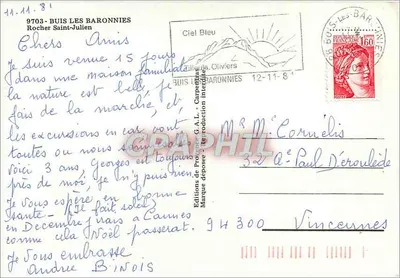 11.11.81
9703 - BUIS LES BARONNIES
Rocher Saint-Julien
Chers Amis
Je suis venue 15 jours
dans une maison familiale
la nature est belle, je
fais de la marche, et
les excursions en car, sont
toutes ou nous
Voici 3 ans, Georges est toujours
près de moi, je n'y puis rien
Je vous espère, en bonne
santé -
en Décembre j'irais a Cannes
comme cela Noël passerat.
Je Vous embrasse
Andrée BINOIS
Ciel Bleu
Oliviers
BUIS LES BARONNIES 12-11-81
26 BUIS-LES-BARONNIES
1,60
Editions de Provence G.A.L. - Carpentras
Marque déposée - Reproduction interdite
CPAPHIL
Mr Me Cornélis
32 Ae Paul Déroulède
94300 Vincennes